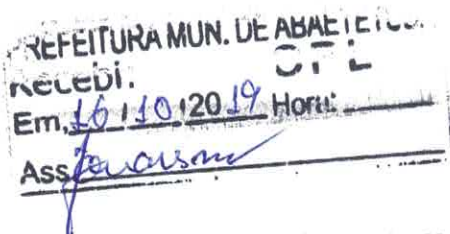 PREFEITURA MUN. DE ABAETETUBA
CPL
RECEBI:
Em, 16 / 10 / 2019 Hora:
Ass